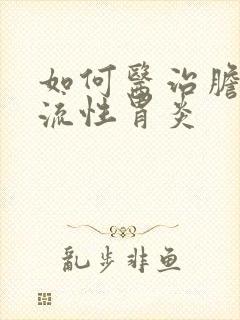 如何醫治膽
流性胃炎
亂步非鱼